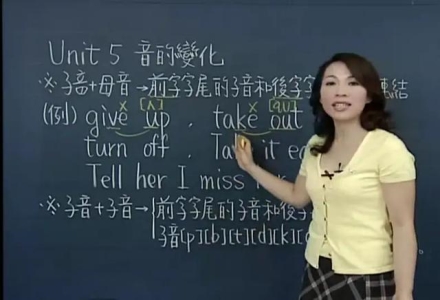 Unit 5 音的變化
※子音+母音→前字字尾的子音和後字字 連結
(例) give up , take out
turn off . Take it ea
Tell her I miss her
※子音+子音→前字字尾的子音和後字
子音[p][b][t][d][k][g]